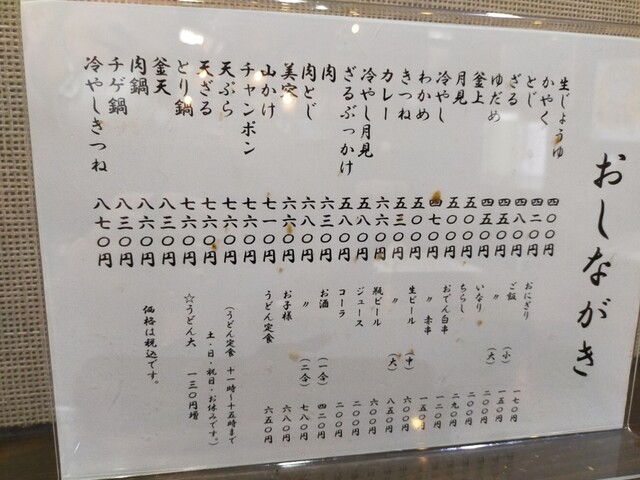 おしながき
生じょうゆ 四〇〇円
かやく 四二〇円
とじ 四八〇円
ざる 四五〇円
ゆだめ 四五〇円
釜上 五〇〇円
月見 五〇〇円
冷やし 四七〇円
わかめ 五〇〇円
きつね 五三〇円
カレー 六五〇円
冷やし月見 五八〇円
ざるぶっかけ 五八〇円
肉 六三〇円
肉とじ 六八〇円
六六〇円
山かけ 七一〇円
チャンポン 七六〇円
天ぷら 七六〇円
天ざる 七六〇円
とり鍋 七六〇円
釜天 八三〇円
肉鍋 八六〇円
チゲ鍋 八三〇円
冷やしきつね 八七〇円
おにぎり 一七〇円
ご飯 (小) 一五〇円
〃 (大) 二〇〇円
いなり 二〇〇円
ちらし 二九〇円
おでん白串 一二〇円
〃 赤串 一五〇円
生ビール (中) 六〇〇円
〃 (大) 八五〇円
瓶ビール 六〇〇円
ジュース 二〇〇円
コーラ 二〇〇円
お酒 (一合) 四二〇円
〃 (二合) 七八〇円
お子様 六八〇円
うどん定食 六五〇円
(うどん定食 十一時〜十五時まで
土・日・祝日・お休みです。)
☆うどん大 一三〇円増
価格は税込です。